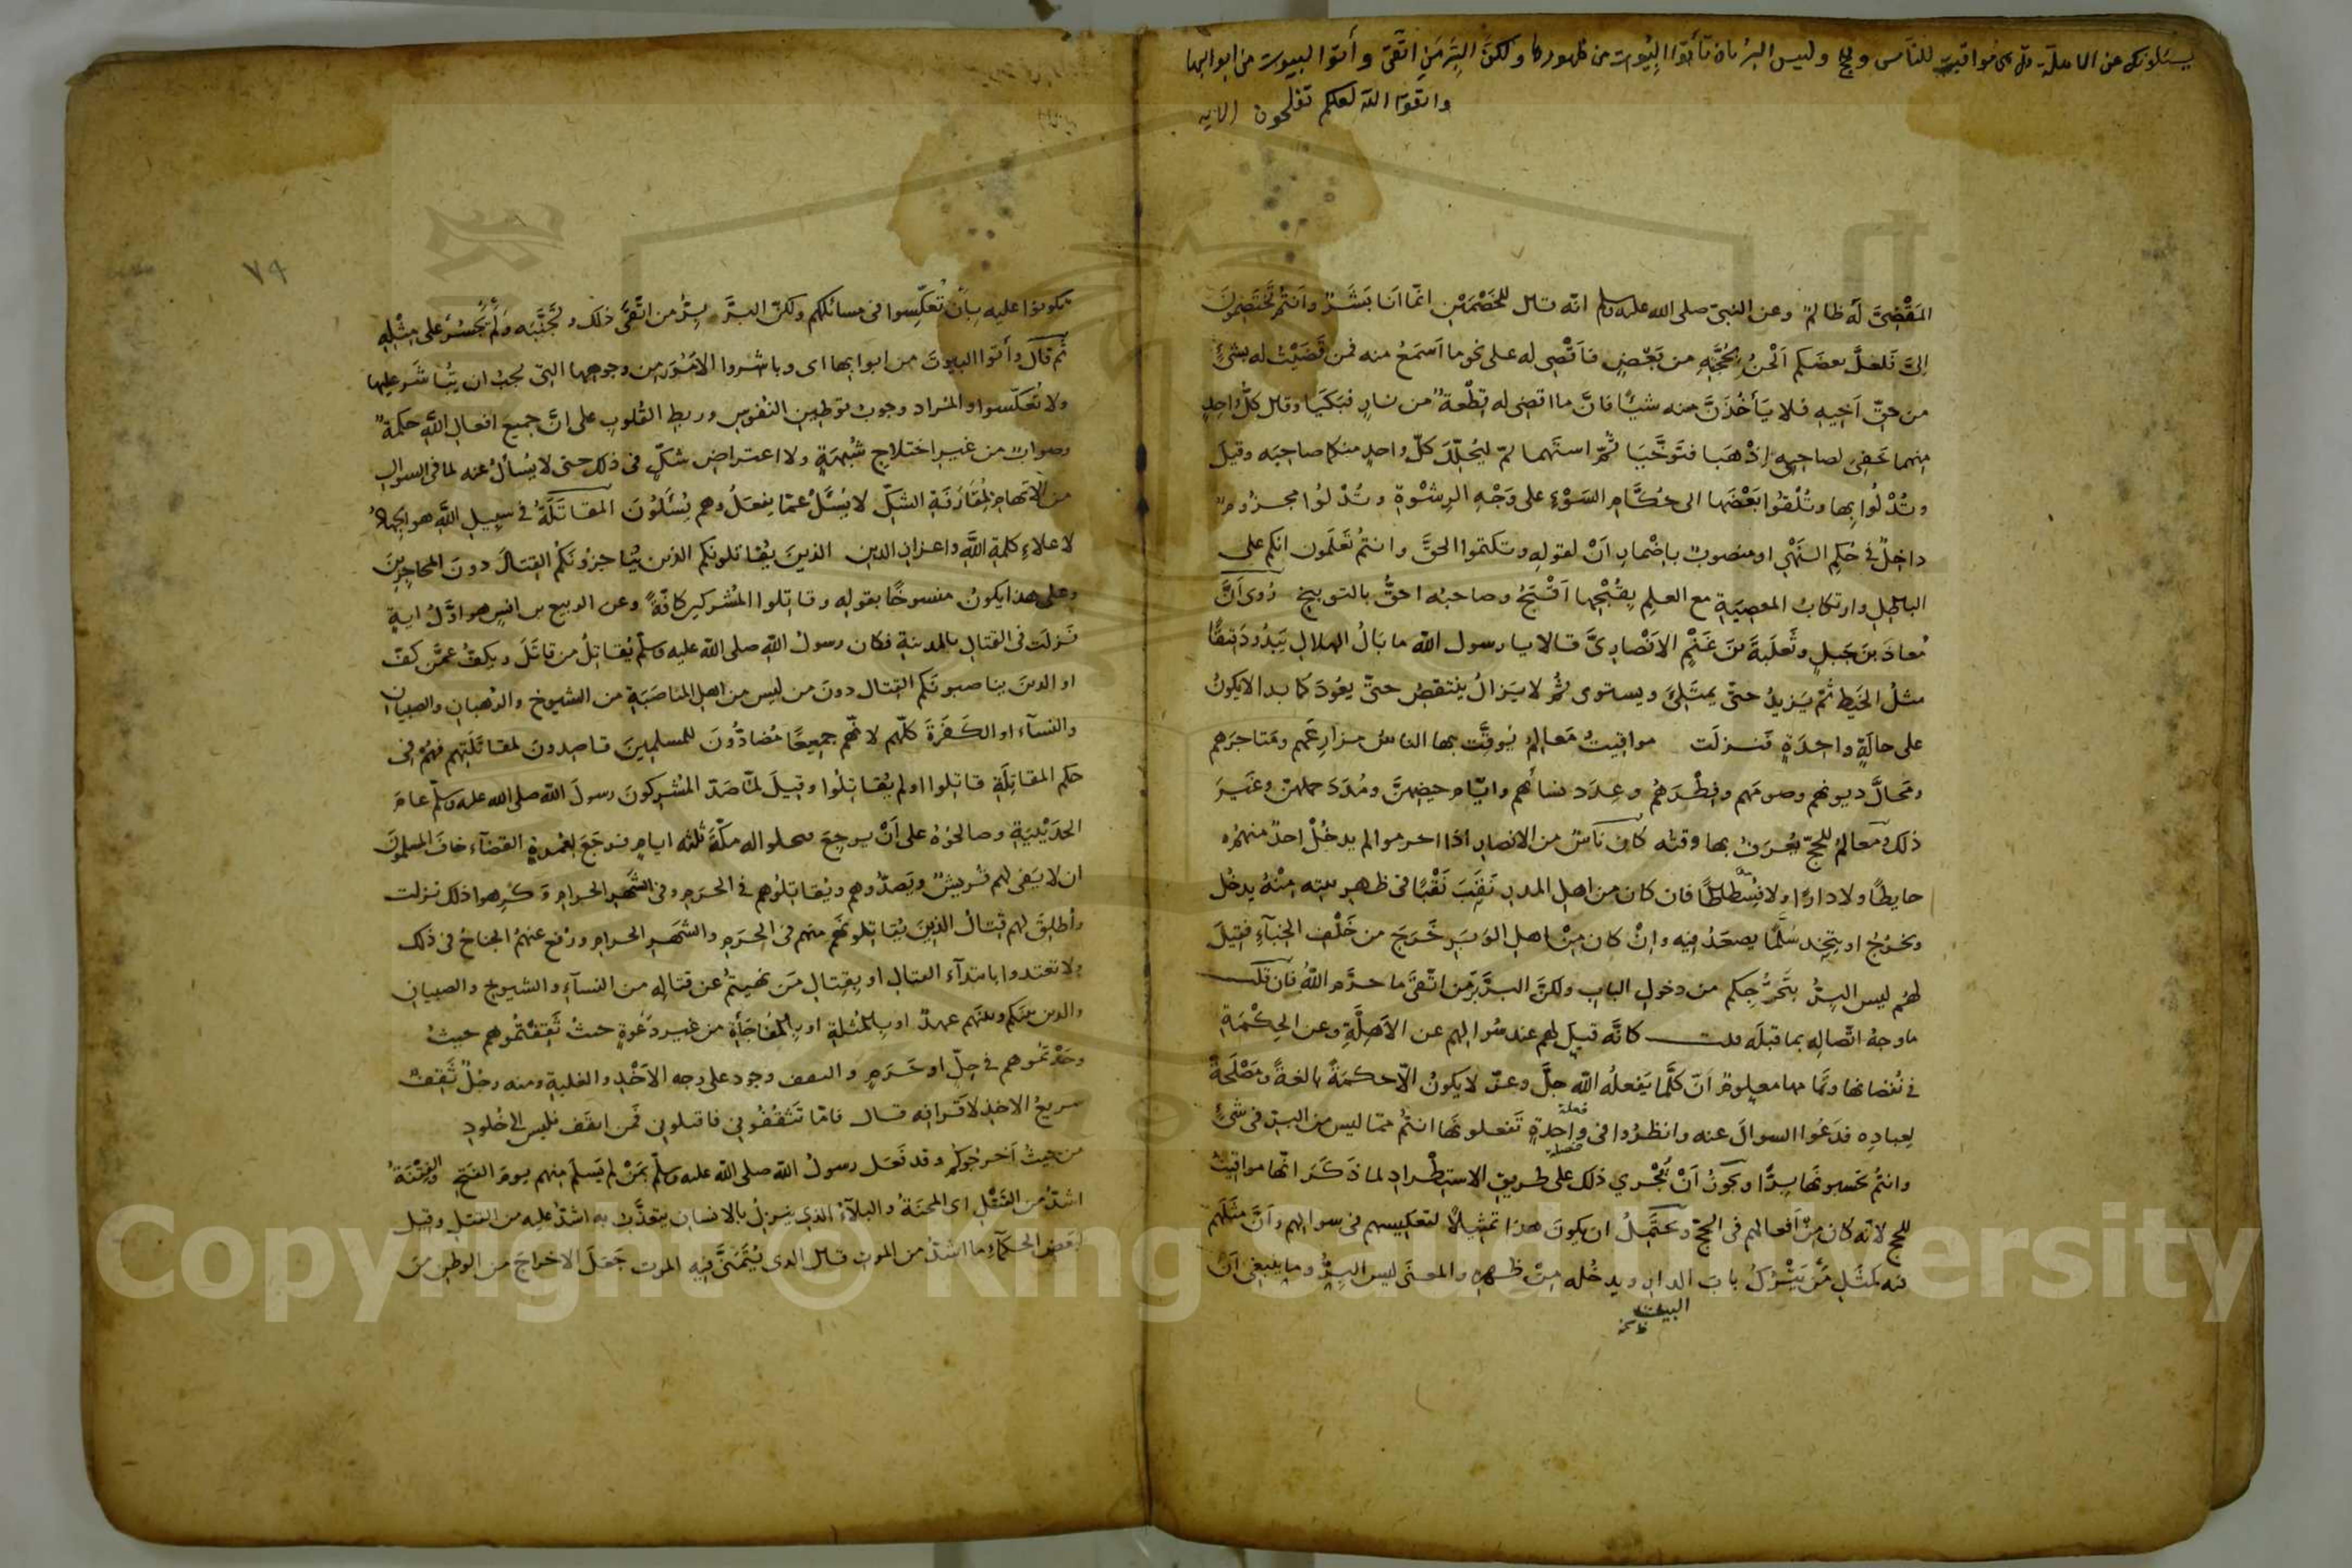 يسئلونك عن الاهلة قل هى مواقيت للناس والحج وليس البر بان تأتوا البيوت من ظهورها ولكن البر من اتقى وأتوا البيوت من ابوابها
واتقوا الله لعلكم تفلحون الايه
المَقْضِىَّ لَه ظالمٌ وعن النبىّ صلى الله عليه وسلم انه قال للخَصْمَيْنِ انّما انا بَشَرٌ وانتم تَخْتَصِمُونَ
اِلىَّ فلعلَّ بعضَكم اَلْحَنُ بِحُجَّتِهِ من بَعْضٍ فاَقْضِى له على نحوِ ما اَسْمَعُ منه فمن قَضَيْتُ له بشئٍ
من حقّ اَخِيهِ فلا يَأخُذَنَّ منه شيئًا فانَّ ما اقضى له قِطْعَةٌ من نارٍ فبَكَيَا وقال كلُّ واحدٍ
منهما حَقِّى لصاحبى فقال اِذْهَبَا فتَوَخَّيَا ثُمَّ استَهِما ثمّ ليُحَلِّلْ كلّ واحدٍ منكما صاحبَه وقيلَ
وتُدْلُوا بها وتُلْقُوا بَعْضَها الى حُكَّامِ السَوْءِ على وَجْهِ الرِشْوةِ وتُدْلُوا مجزُومٌ
داخِلٌ فى حُكمِ النَهْىِ او منصوبٌ باِضْمارِ اَنْ لقوله وتكتموا الحقَّ وانتم تَعْلَمون انكم على
الباطلِ وارتكابُ المعصِيَةِ مع العلمِ بِقُبْحِها اَقْبَحُ وصاحبُه احقُّ بالتوبيخ رُوِىَ اَنَّ
مُعاذَ بنَ جَبلٍ وثَعلَبةَ بنَ غَنْمٍ الاَنْصارِىَّ قالا يا رسول الله ما بَالُ الهلالِ يَبْدُو دَقيقًا
مثلُ الخَيطِ ثمّ يَزيدُ حتّى يمتَلِئَ ويستوى ثُمّ لا يَزالُ ينتقصُ حتّى يعُودَ كما بدا لا يكونُ
على حالَةٍ واحِدَةٍ فَنزلَت مواقيتُ مَعالِمُ يُوقِّت بها الناسُ مزارِعَهم ومَتاجرَهم
ومَحالَّ ديونهم وصومَهم وفِطْرَهُم وعِدَد نسائهم وايّام حيضهنَّ ومُدَدَ حملهنّ وغَيرَ
ذلك ومَعالِمُ للحجّ يُعْرَفُ بها وقتُه كان ناسٌ من الانصارِ اذا احرموا لم يدخُلْ احدٌ منهم
حايطًا ولا دارًا ولا فُسْطاطًا فان كان من اهل المدرِ نَقَبَ نَقْبًا فى ظهر بيته مِنْهُ يدخُل
ويخرُجُ او يتّخِذ سُلَّمًا يصعَدُ فيه وانْ كان مِنْ اهل الوَبَرِ خَرَجَ من خَلْف الخِبآءِ فقيلَ
لهُم ليس البِرُّ بتَحَرُّجِكم من دخولِ البابِ ولكنّ البرَّ بِرّ من اتّقَى ما حرَّم اللهُ فان قلت
ما وجهُ اتّصالِه بما قبلَه قلت كانَّه قيل لهم عند سُوالهِم عن الاَهِلَّةِ وعن الحِكْمَةِ
فى نُقصانها وتَمامها معلومٌ اَنّ كلَّما يَفعلُه اللهُ جلَّ وعزّ لا يكونُ الّا حكمَةً بالغةً ومَصْلَحةً
لِعبادِه فدَعُوا السوالَ عنه وانظُرُوا فى واحِدةٍ تَفعلونَها انتُم ممّا ليس من البِرّ فى شئٍ
فعلة
خصلة
وانتُم تحسبونَها بِرًّا ويجوزُ اَنْ يَجْرِي ذلك على طريق الاستِطْرادِ لما ذَكَرَ انّها مواقيتُ
للحج لانّه كان مِنْ اَفعالهِم فى الحجّ ويَحتَمِلُ ان يكونَ هذا تمثيلًا لتعكيسهم فى سوالهم واَنّ مَثَلَهُم
فيه كمثَلِ مَنْ يَتْرُكُ بابَ الدارِ ويدخُله مِنْ ظهرِه والمعنَى ليس البِرُّ وما ينبغى اَنْ
البيت
ظ نخه
٧٩
تكونوا عليه بِاَن تُعكِّسوا فى مسائلكم ولكنّ البرَّ بِرُّ من اتَّقَى ذلك وتَجنَّبَه ولَمْ يَجْسُرْ على مِثْلِهِ
ثُمّ قال وأتوا البيوتَ من ابوابها اى وباشروا الامُوْرَ من وجوهها التى يجبُ ان يُبَاشَر عليها
ولا تُعكّسوا والمُراد وجوبُ توطينِ النُفوسِ وربطِ القُلوبِ على انَّ جميع افعالِ اللهِ حكمةٌ
وصوابٌ من غير اختلاجِ شُبْهَةٍ ولا اعتراضِ شكٍّ فى ذلك حتى لا يُسألُ عنه لما فى السوالِ
من الاتهام بمُقارَنَةِ الشكّ لا يُسْئَلُ عمّا يفعلُ وهم يُسْئَلُونَ المقاتَلَةُ فى سبيلِ اللهِ هو الجهادُ
لاعلاءِ كلمةِ اللهِ واعزازِ الدينِ الذينَ يُقاتلونكم الذين يُناجزُونَكُم القِتالَ دونَ المحاجزينَ
وعلى هذا يكونُ منسوخًا بقوله وقاتِلوا المُشركين كافّةً وعن الربيع بن انسٍ هو اوّلُ ايةٍ
نَزلَت فى القتالِ بالمدينةِ فكان رسولُ اللهِ صلى الله عليه وسلم يُقاتلُ من قاتَلَ ويكفّ عمَّن كفّ
او الذينَ يناصبونكم القتال دونَ من ليس من اهل المناصَبَةِ من الشيوخِ والرُهبانِ والصبيانِ
والنسآءِ او الكَفَرَةَ كلّهم لانّهُم جميعًا مُضادُّونَ للمسلمينَ قاصِدونَ لمقاتَلَتِهم فهُم فى
حكم المقاتلَةِ قاتلوا او لم يُقاتِلُوا وقيلَ لمّا صَدّ المُشركونَ رسولَ الله صلى الله عليه وسلم عامَ
الحدَيْبيةِ وصالحُوهُ على اَنْ يرجعَ من قابل فيخلوا له مكّةَ ثلثة ايامٍ فرجَعَ لِعُمرةِ القضآءِ خافَ المسلمونَ
ان لا يَفى لهم قُريشٌ ويَصدُّوهم ويُقاتلوُهم فى الحَرَمِ وفى الشَهرِ الحرامِ وكَرِهوا ذلك نزلت
وأُطلِقَ لهم قتالُ الذينَ يُقاتلونَهُم منهم فى الحرَمِ والشَهرِ الحرامِ ورُفع عنهمُ الجناحُ فى ذلك
ولا تعتدوا بابتدآء القتال او بِقِتالِ مَن نُهيتُم عن قتالِه من النسآءِ والشيوخِ والصبيانِ
والذين بينكم وبينَهم عهدٌ او بِالمُثلةِ او بِالمُفاجَأةِ من غيرِ دَعْوةٍ حيثُ ثَقِفْتُموهم حيثُ
وجدْتمُوهم فى حِلّ او حَرَمٍ والثقف وجود على وجه الاَخْذِ والغلبةِ ومنه رجُلٌ ثَقِفٌ
سريعُ الاخذِ لاَقرانِه قال فامّا تَثقَفُونى فاقتلونى فمن اثقَف فليس الى خُلودِ
من حيثُ اَخرجُوكُم وقد فَعَل رسولُ الله صلى الله عليه وسلّم بمَنْ لم يَسلم منهم يومَ الفتحِ والفِتْنَةُ
اشدُّ من القَتْلِ اى المحنَةُ والبلآءُ الذى ينزلُ بالانسانِ يتعذَّبُ به اشدُّ عليه من القتلِ وقيل
لبَعضِ الحكمآءِ ما اشدُّ من الموتِ قال الذى يُتَمَنَّى فيه الموت جَعَلَ الاخراجَ من الوطنِ منَ
Copyright © King Saud University